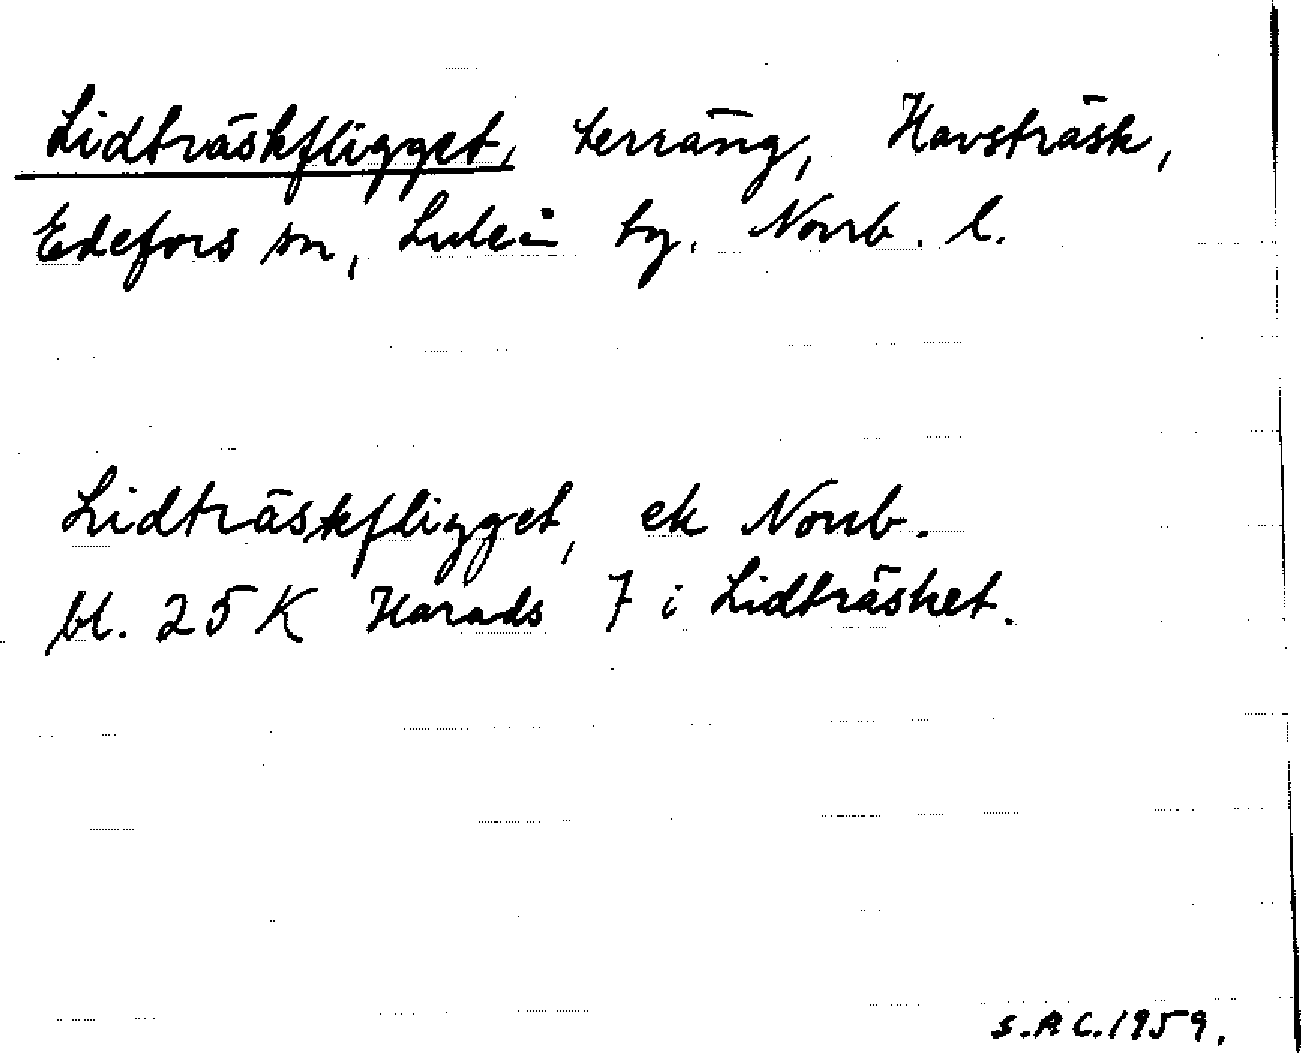 Lidträskfligget, terräng, Havsträsk,
Edefors sn, Luleå tg. Norrb. l.
Lidträskfligget, ek Norrb.
bl. 25 K Harads 7 i Lidträsket.
S.A C. 1959.